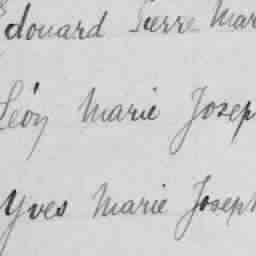 Edouard Pierre Mar
Léon Marie Josep
Yves Marie Joseph